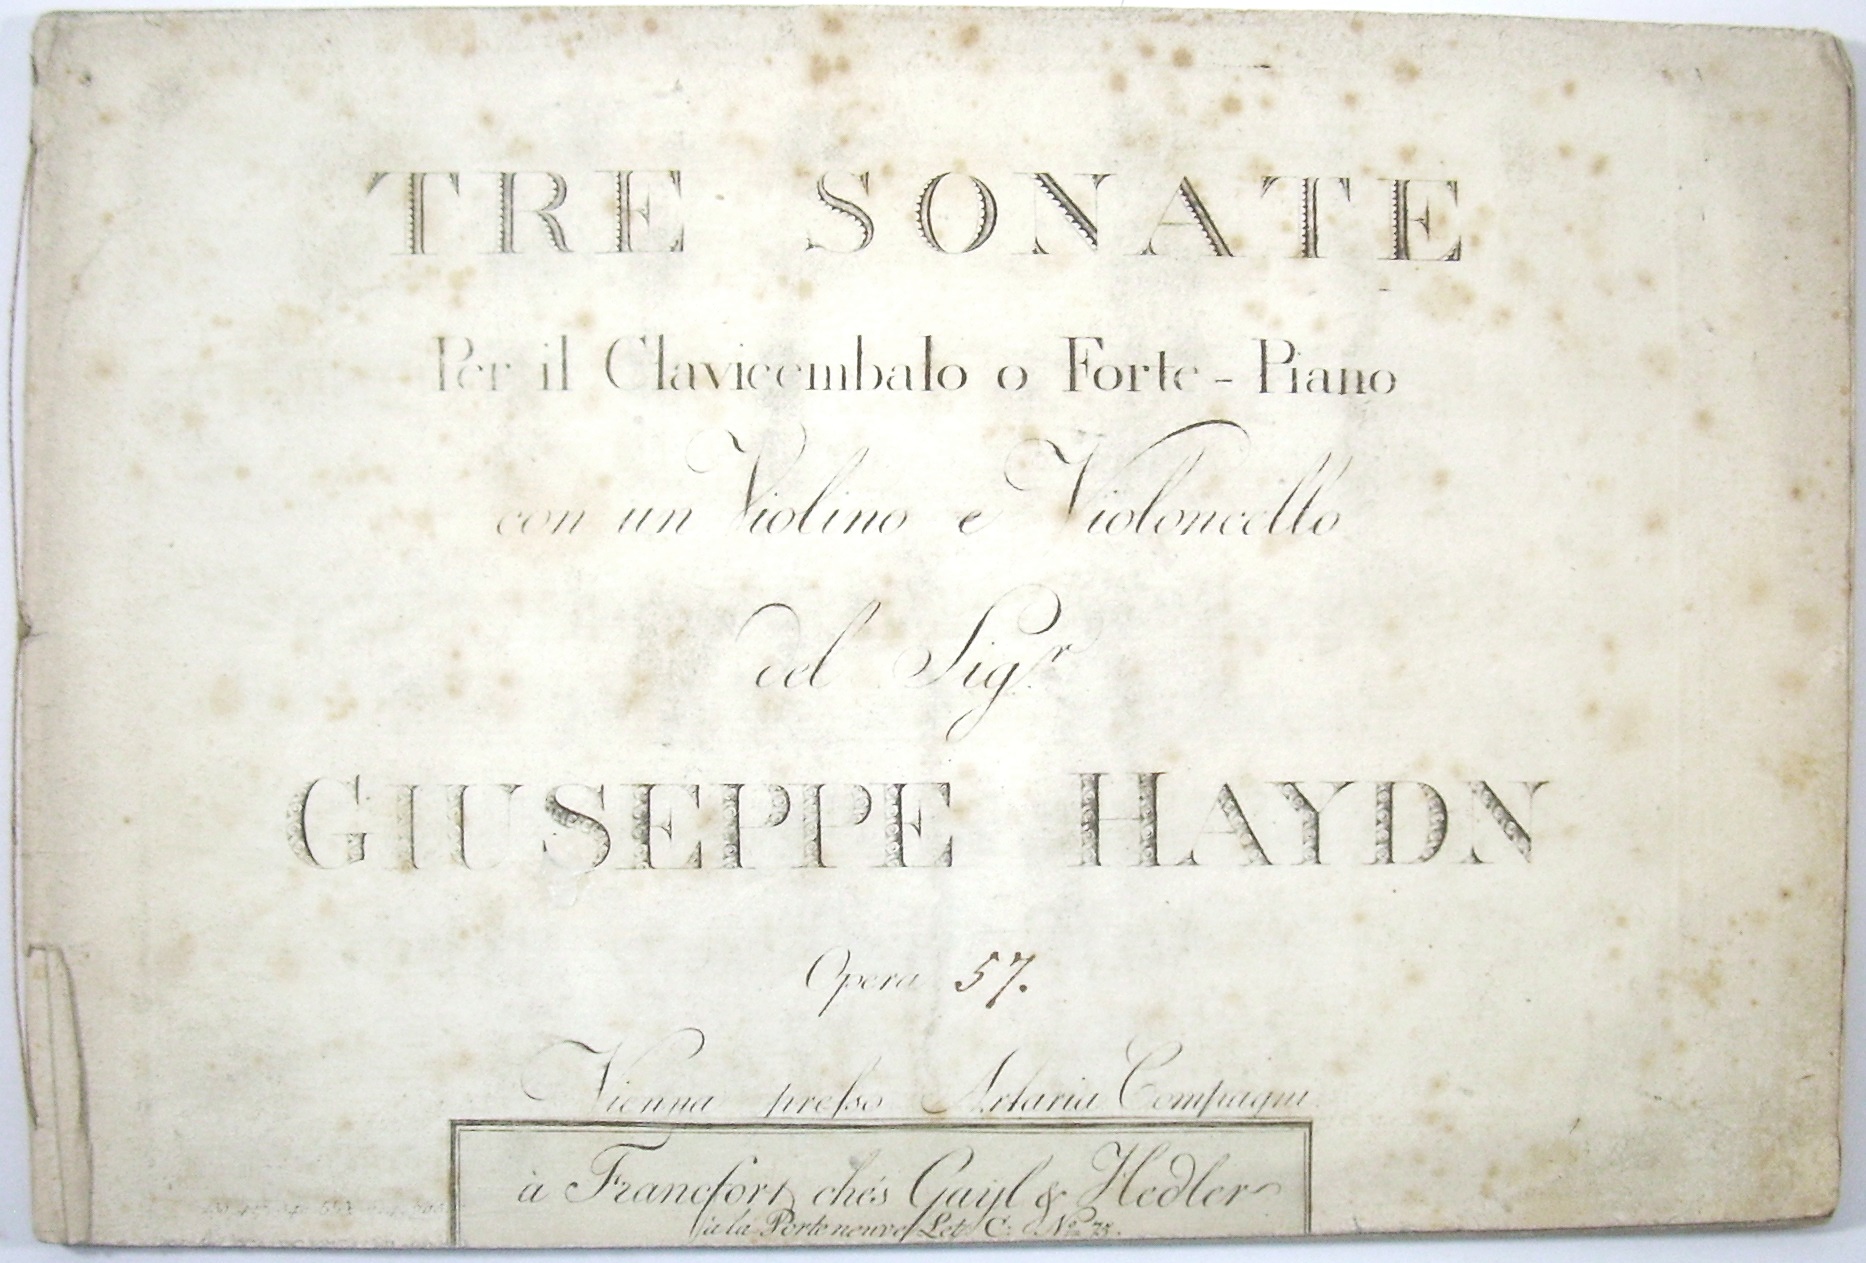 TRE SONATE
Per il Clavicembalo o Forte-Piano
con un Violino e Violoncello
del Sigr.
GIUSEPPE HAYDN
Opera 57.
Vienna presso Artaria Compagni
à Francfort chés Gayl & Hedler
à la Porte neuve Let. C: No. 73.